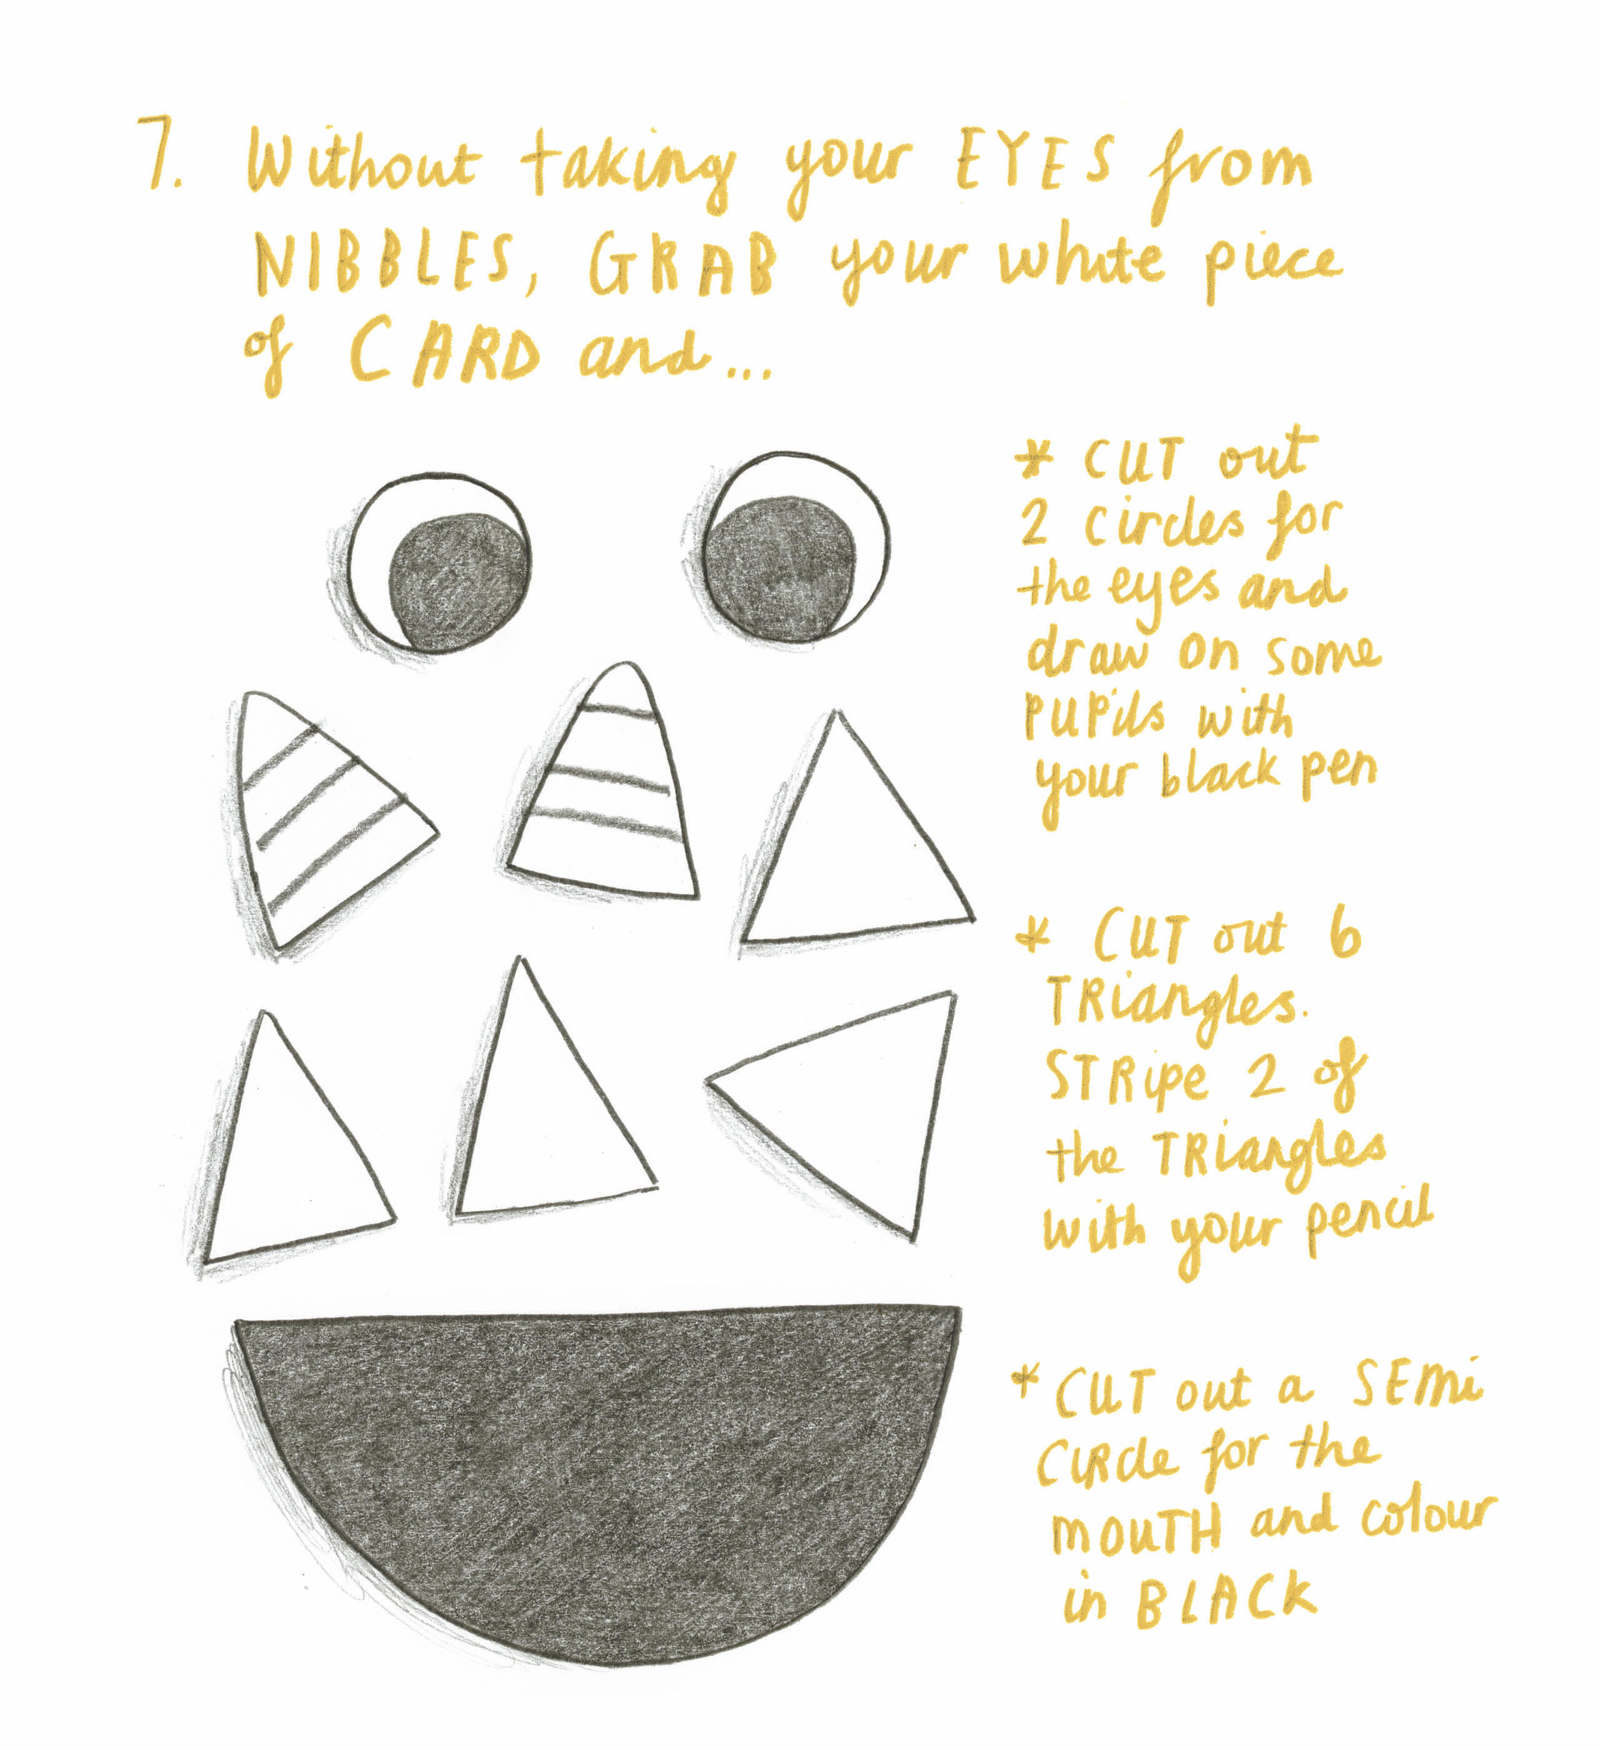 7. Without taking your EYES from
NIBBLES, GRAB your white piece
of CARD and...
* CUT out
2 circles for
the eyes and
draw on some
PUPils with
your black pen
* CUT out 6
TRiangles.
STRipe 2 of
the TRiangles
with your pencil
* CUT out a SEMi
CIRcle for the
MOUTH and colour
in BLACK